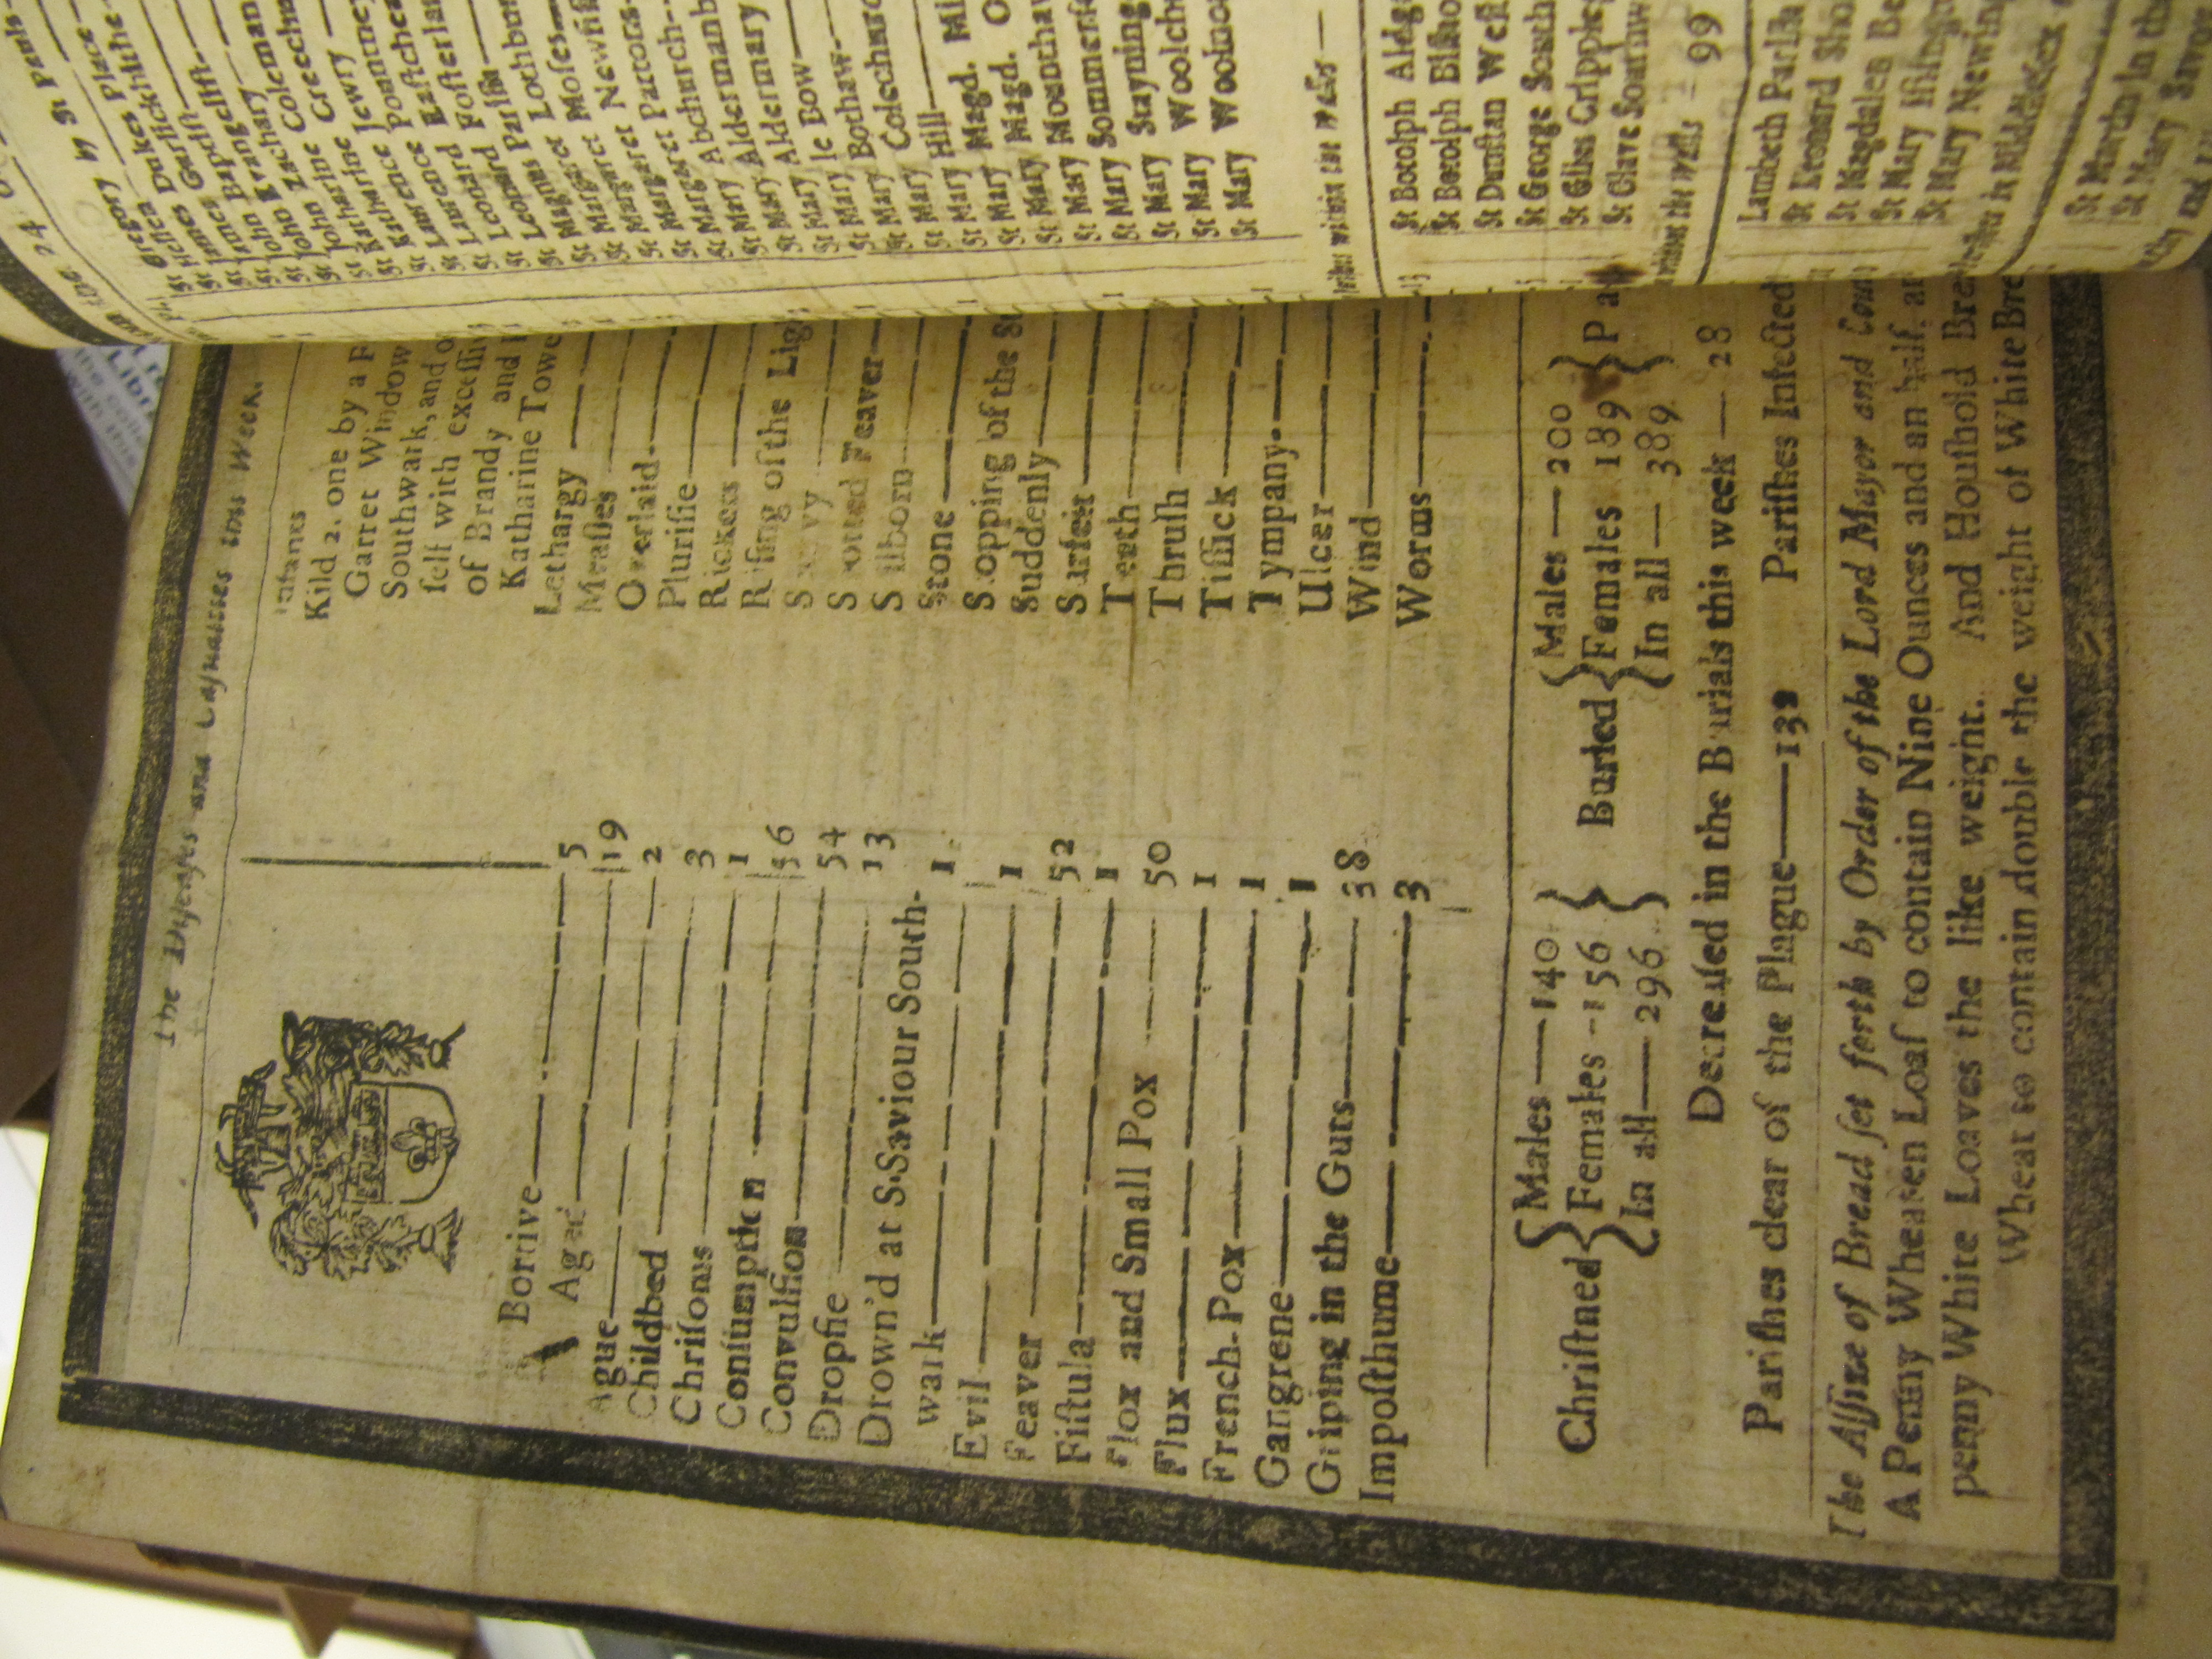 The Diseases and Casualties this Week.
Bortive 5
Aged 19
Ague 2
Childbed 3
Chriſoms 1
Conſumption 56
Convulſion 54
Dropſie 13
Drown'd at S. Saviour South-
wark 1
Evil 1
Feaver 52
Fiſtula 1
Flox and Small Pox 50
Flux 1
French-Pox 1
Gangrene 1
Griping in the Guts 38
Impoſthume 3
Infants
Kild 2. one by a F
Garret Window
Southwark, and o
ſelf with exceſſi
of Brandy and
Katharine Towe
Lethargy
Meaſles
Overlaid
Pluriſie
Rickets
Riſing of the Lig
Scurvy
Spotted Feaver
Stilborn
Stone
Stopping of the St
Suddenly
Surfeit
Teeth
Thruſh
Tiſſick
Tympany
Ulcer
Wind
Worms
Chriſtned { Males — 140 }
Females - 156
In all — 296
Buried { Males — 200 }
Females 189
In all — 389
Pa
Decreaſed in the Burials this week — 28
Pariſhes clear of the Plague — 132 Pariſhes Infected
The Aſſize of Bread ſet forth by Order of the Lord Mayor and Cour
A Penny Wheaten Loaf to contain Nine Ounces and an half, a
penny White Loaves the like weight. And Houſhold Bre
Wheat to contain double the weight of White Bre
St Gregory by St Pauls
St Hellen
St James Dukes Place
St James Garlickhithe
St John Baptiſt
St John Evangeliſt
St John Zachary
St Katharine Coleman
St Katharine Creechu
St Lawrence Jewry
St Lawrence Pountney
St Leonard Eaſtchea
St Leonard Foſterla
St Magnus Pariſh
St Margaret Lothbur
St Margaret Moſes
St Margaret Newfiſh
St Margaret Pattons
St Mary Abchurch
St Mary Aldermanb
St Mary Aldermary
St Mary le Bow
St Mary Bothaw
St Mary Colechurc
St Mary Hill
St Mary Magd. Mi
St Mary Magd. O
St Mary Mounthav
St Mary Sommerſe
St Mary Stayning
St Mary Woolchu
St Mary Woolno
within the walls
St Botolph Aldg
St Botolph Biſho
St Dunſtan Weſt
St George South
St Giles Cripple
St Olave Southw
without the walls — 99
Lambeth Pariſh
St Leonard Sho
St Magdalen Be
St Mary Iſlingt
St Mary Newing
St Martin in the
St Mary Savoy